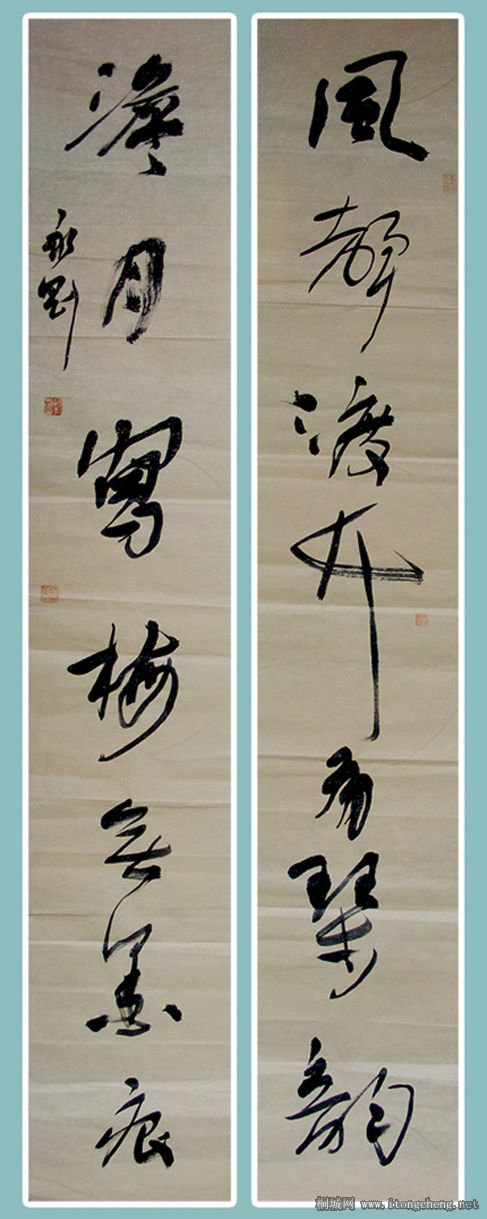 風聲渡竹有琴韻
月寫梅無墨痕
永剛
桐城网 www.itongcheng.net